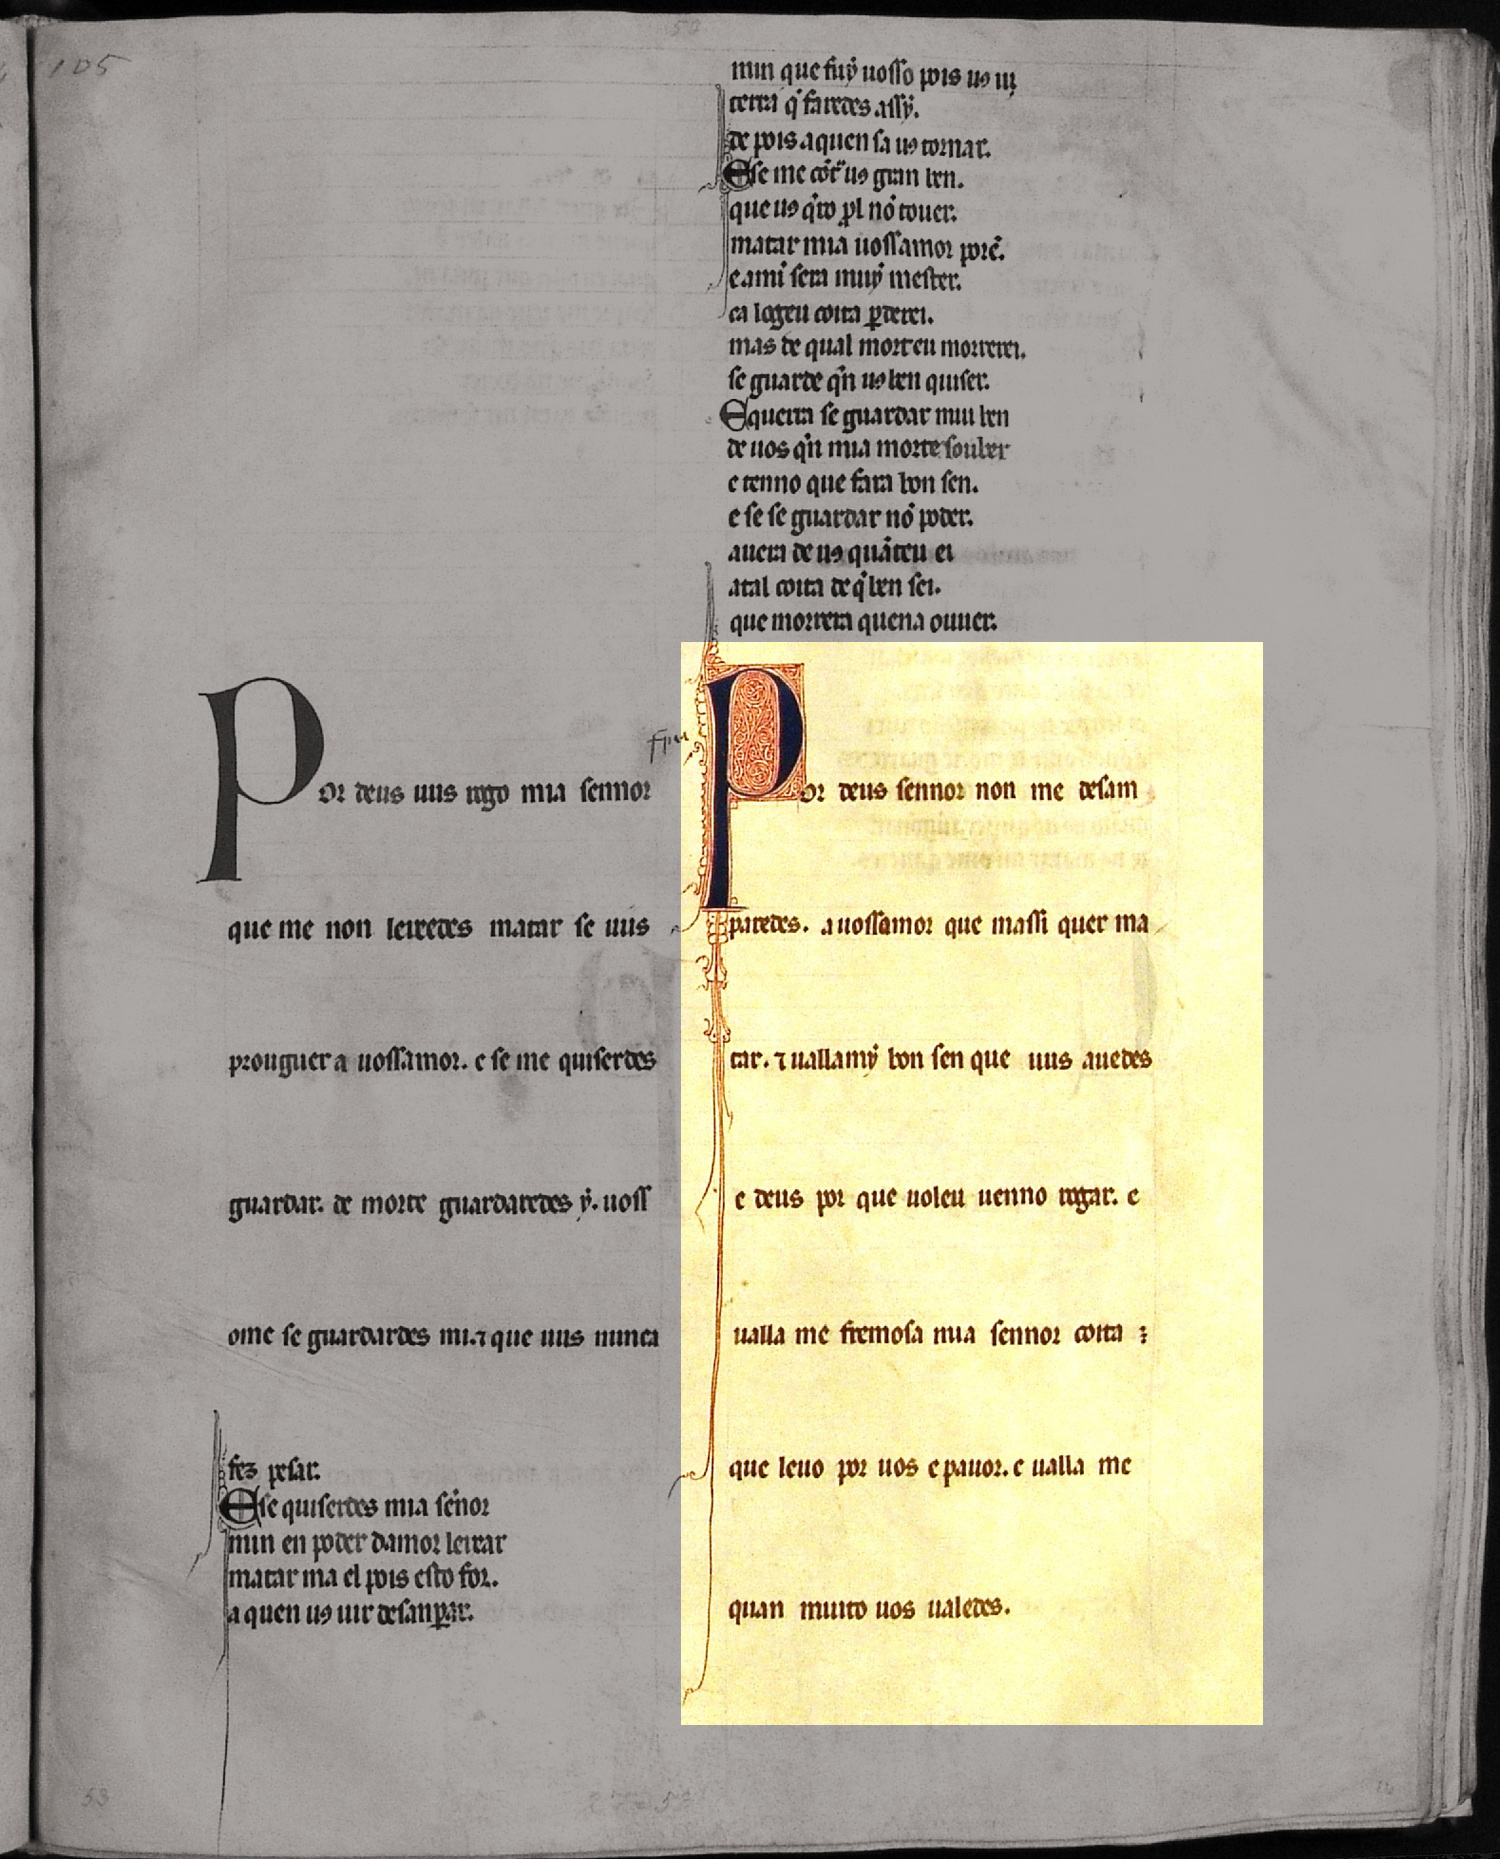 105
Por deus uus rogo mia sennor
que me non leixedes matar se uus
prouguer a uossamor. e se me quiserdes
guardar. de morte guardaredes ẏ. uoss
ome se guardardes mi. ⁊ que uus nunca
fez pesar.
Ese quiserdes mia sẽnor
min en poder damor leixar
matar ma el pois esto for.
a quen uꝯ uir desanꝑar.
min que fuẏ uosso pois uꝯ uij
terra q̇ faredes assẏ.
de pois a quen sa uꝯ tornar.
Ese me uꝯ gran ben.
que uꝯ q̇ro ꝑl nõ touer.
matar mia uossamor porẽ.
e ami sera muẏ mester.
ca logeu coita ꝑderei.
mas de qual morteu morrerei.
se guarde q̇n uꝯ ben quiser.
Equerra se guardar mui ben
de uos q̇n mia morte souber
e tenno que fara bon sen.
e se se guardar nõ poder.
auera de uꝯ quãteu ei
atal coita de q̇ ben sei.
que morrera quena ouuer.
fpin
Por deus sennor non me desam
paredes. a uossamor que massi quer ma
tar. ⁊ uallamẏ bon sen que uus auedes
e deus por que uoleu uenno rogar. e
ualla me fremosa mia sennor coita ;
que leuo por uos e pauor. e ualla me
quan muito uos ualedes.
53